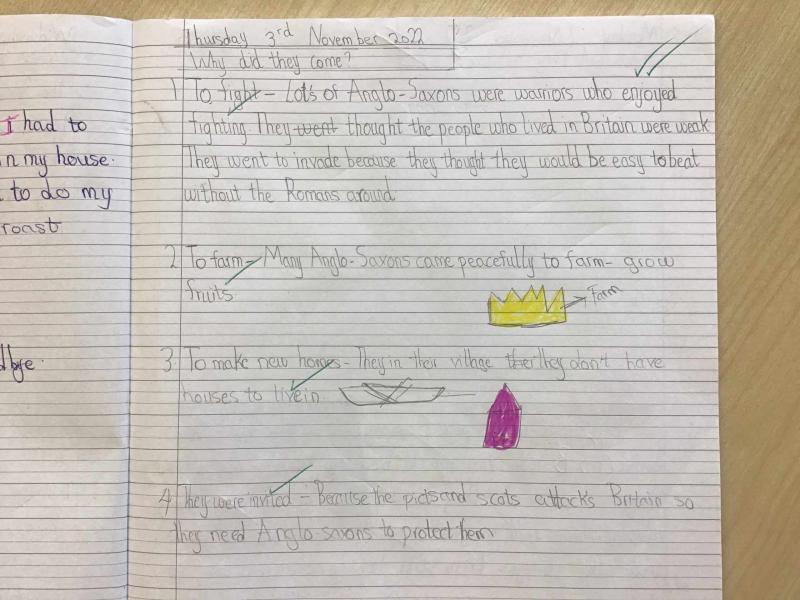 I had to
n my house.
to do my
roast
dbye.
Thursday 3rd November 2022
Why did they come?
1 To fight - Lot's of Anglo-Saxons were warriors who enjoyed
fighting. They went thought the people who lived in Britain were weak
They went to invade because they thought they would be easy to beat
without the Romans around.
2 To farm - Many Anglo-Saxons came peacefully to farm - grow
fruits.
Farm
3 To make new homes - They in their village they don't have
houses to live in.
4 They were invited - Because the picts and scots attack's Britain so
they need Anglo-saxons to protect them